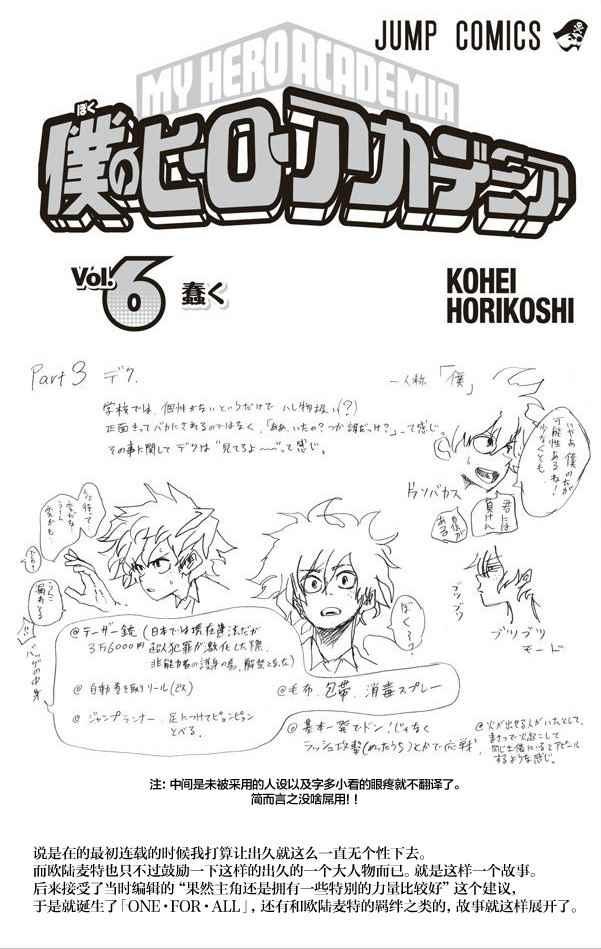 JUMP COMICS
MY HERO ACADEMIA
ぼく
僕のヒーローアカデミア
Vol. 6
蠢く
KOHEI
HORIKOSHI
Part 3 デク.
一人称「僕」
学校では、個性がないというだけで ハレ物扱い(?)
正面きってバカにされるのではなく、「ああ、いたの?つか誰だっけ?」って感じ。
その事に関してデクは"見てろよ〜〜"って感じ。
いやあ僕の方が
可能性あるね!
少なくとも
君には
負けん
自信が
ある
ブツブツ
ブツブツ
モード
ぼくる?
@テーザー銃(日本では現在違法だが
3万6000円 超人犯罪が激化した際、
非能力者の護身の為、解禁となった)
@自動巻き取りリール(ビス)
@毛布、包帯、消毒スプレー
@ジャンプランナー、足につけてピョンピョン
とべる。
@基本一発でドン!じゃなく
ラッシュ攻撃(めったうち)とかで応戦
注:中间是未被采用的人设以及字多小看的眼疼就不翻译了。
简而言之没啥屌用!!
说是在的最初连载的时候我打算让出久就这么一直无个性下去。
而欧陆麦特也只不过鼓励一下这样的出久的一个大人物而已。就是这样一个故事。
后来接受了当时编辑的“果然主角还是拥有一些特别的力量比较好”这个建议,
于是就诞生了「ONE·FOR·ALL」,还有和欧陆麦特的羁绊之类的,故事就这样展开了。